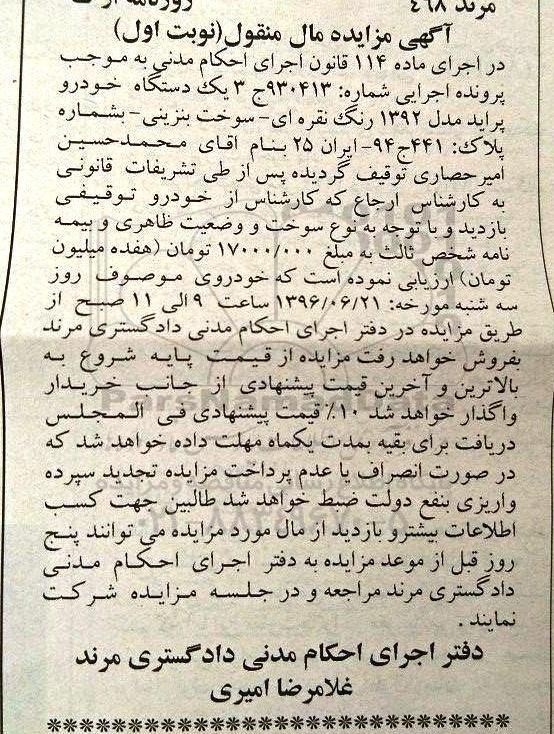 مرند ۴۶۸
آگهی مزایده مال منقول(نوبت اول)
در اجرای ماده ۱۱۴ قانون اجرای احکام مدنی به موجب
پرونده اجرایی شماره: ۹۳۰۴۱۳ج ۳ یک دستگاه خودرو
پراید مدل ۱۳۹۲ رنگ نقره ای- سوخت بنزینی- بشماره
پلاک: ۴۴۱ج۹۴- ایران ۲۵ بنام آقای محمدحسین
امیرحصاری توقیف گردیده پس از طی تشریفات قانونی
به کارشناس ارجاع که کارشناس از خودرو توقیفی
بازدید و با توجه به نوع سوخت و وضعیت ظاهری و بیمه
نامه شخص ثالث به مبلغ ۱۷۰۰۰/۰۰۰ تومان (هفده میلیون
تومان) ارزیابی نموده است که خودروی موصوف روز
سه شنبه مورخه: ۱۳۹۶/۰۶/۲۱ ساعت ۹ الی ۱۱ صبح از
طریق مزایده در دفتر اجرای احکام مدنی دادگستری مرند
بفروش خواهد رفت مزایده از قیمت پایه شروع به
بالاترین و آخرین قیمت پیشنهادی از جانب خریدار
واگذار خواهد شد ۱۰٪ قیمت پیشنهادی فی المجلس
دریافت برای بقیه بمدت یکماه مهلت داده خواهد شد که
در صورت انصراف یا عدم پرداخت مزایده تجدید سپرده
واریزی بنفع دولت ضبط خواهد شد طالبین جهت کسب
اطلاعات بیشترو بازدید از مال مورد مزایده می توانند پنج
روز قبل از موعد مزایده به دفتر اجرای احکام مدنی
دادگستری مرند مراجعه و در جلسه مزایده شرکت
نمایند .
دفتر اجرای احکام مدنی دادگستری مرند
غلامرضا امیری